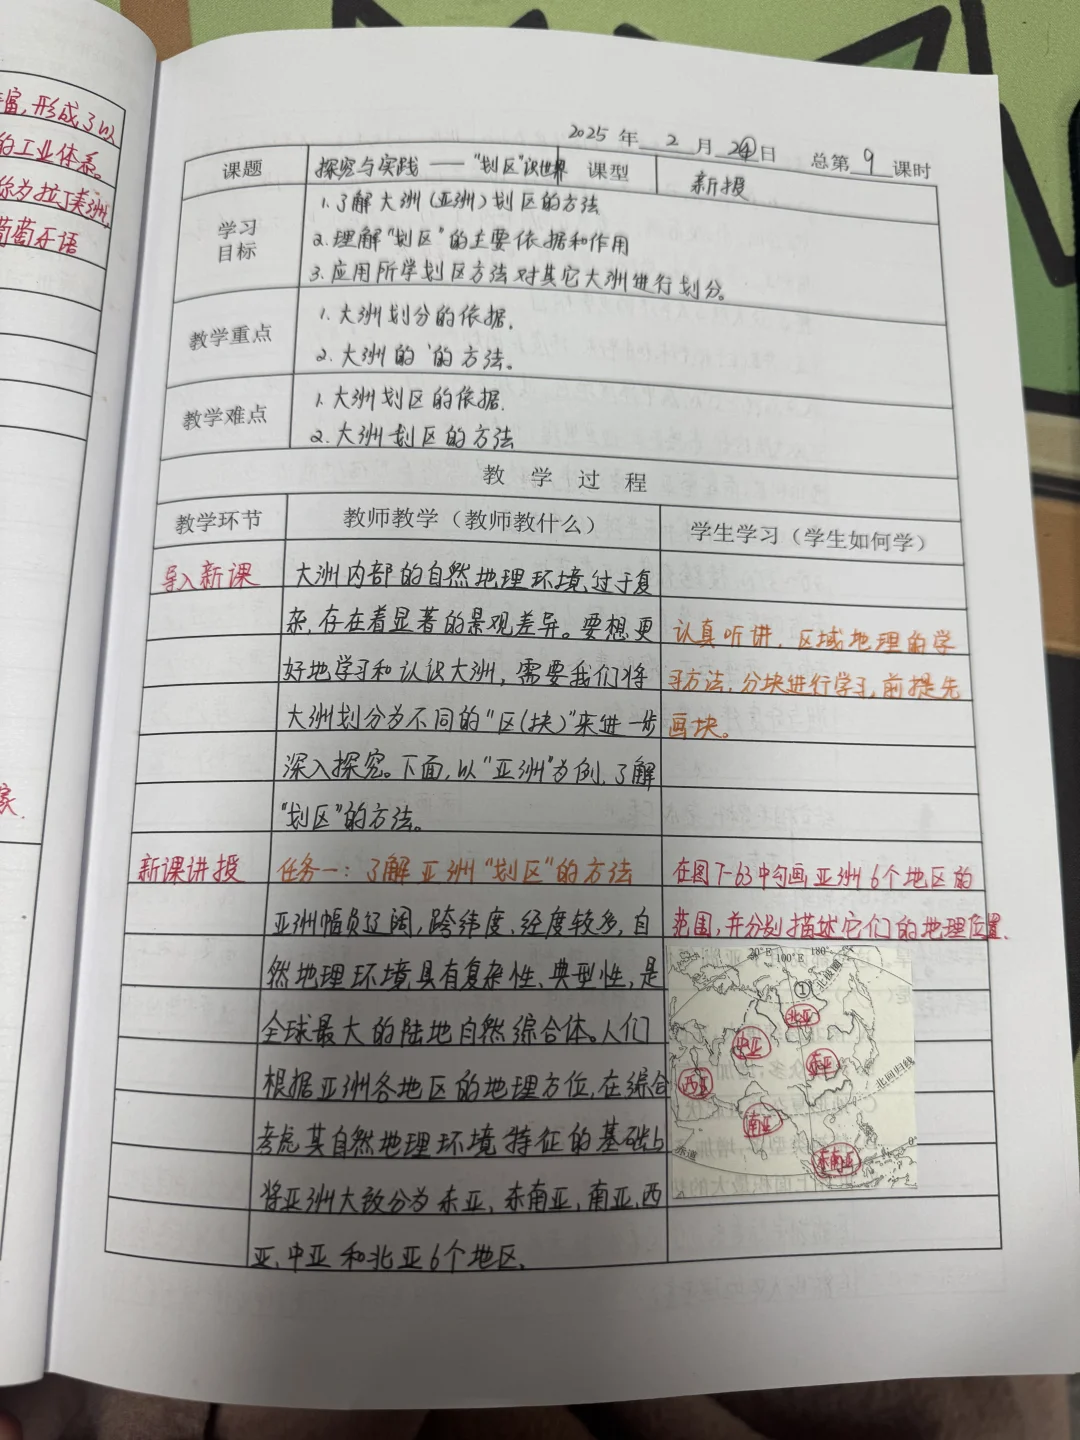 富,形成了以
的工业体系。
称为拉丁美洲,
葡萄牙语
家.
2025 年 2 月 24 日 总第 9 课时
课题 探究与实践 —— "划区"识世界 课型 新授
学习目标
1.了解大洲(亚洲)划区的方法
2.理解"划区"的主要依据和作用
3.应用所学划区方法对其它大洲进行划分。
教学重点
1.大洲划分的依据.
2.大洲的 的方法。
教学难点
1.大洲划区的依据.
2.大洲划区的方法
教 学 过 程
教学环节 教师教学(教师教什么) 学生学习(学生如何学)
导入新课
大洲内部的自然地理环境过于复
杂,存在着显著的景观差异。要想更
好地学习和认识大洲,需要我们将
大洲划分为不同的"区(块)"来进一步
深入探究。下面,以"亚洲"为例,了解
"划区"的方法。
认真听讲,区域地理的学
习方法,分块进行学习,前提先
画块。
新课讲授
任务一:了解亚洲"划区"的方法
亚洲幅员辽阔,跨纬度、经度较多,自
然地理环境具有复杂性、典型性,是
全球最大的陆地自然综合体。人们
根据亚洲各地区的地理方位,在综合
考虑其自然地理环境特征的基础上
将亚洲大致分为东亚,东南亚,南亚,西
亚,中亚和北亚6个地区.
在图7-63中勾画亚洲6个地区的
范围,并分别描述它们的地理位置.
20°E 100°E 180°
①
北极圈
北亚
中亚
东亚
西亚
北回归线
南亚
赤道
0°
东南亚